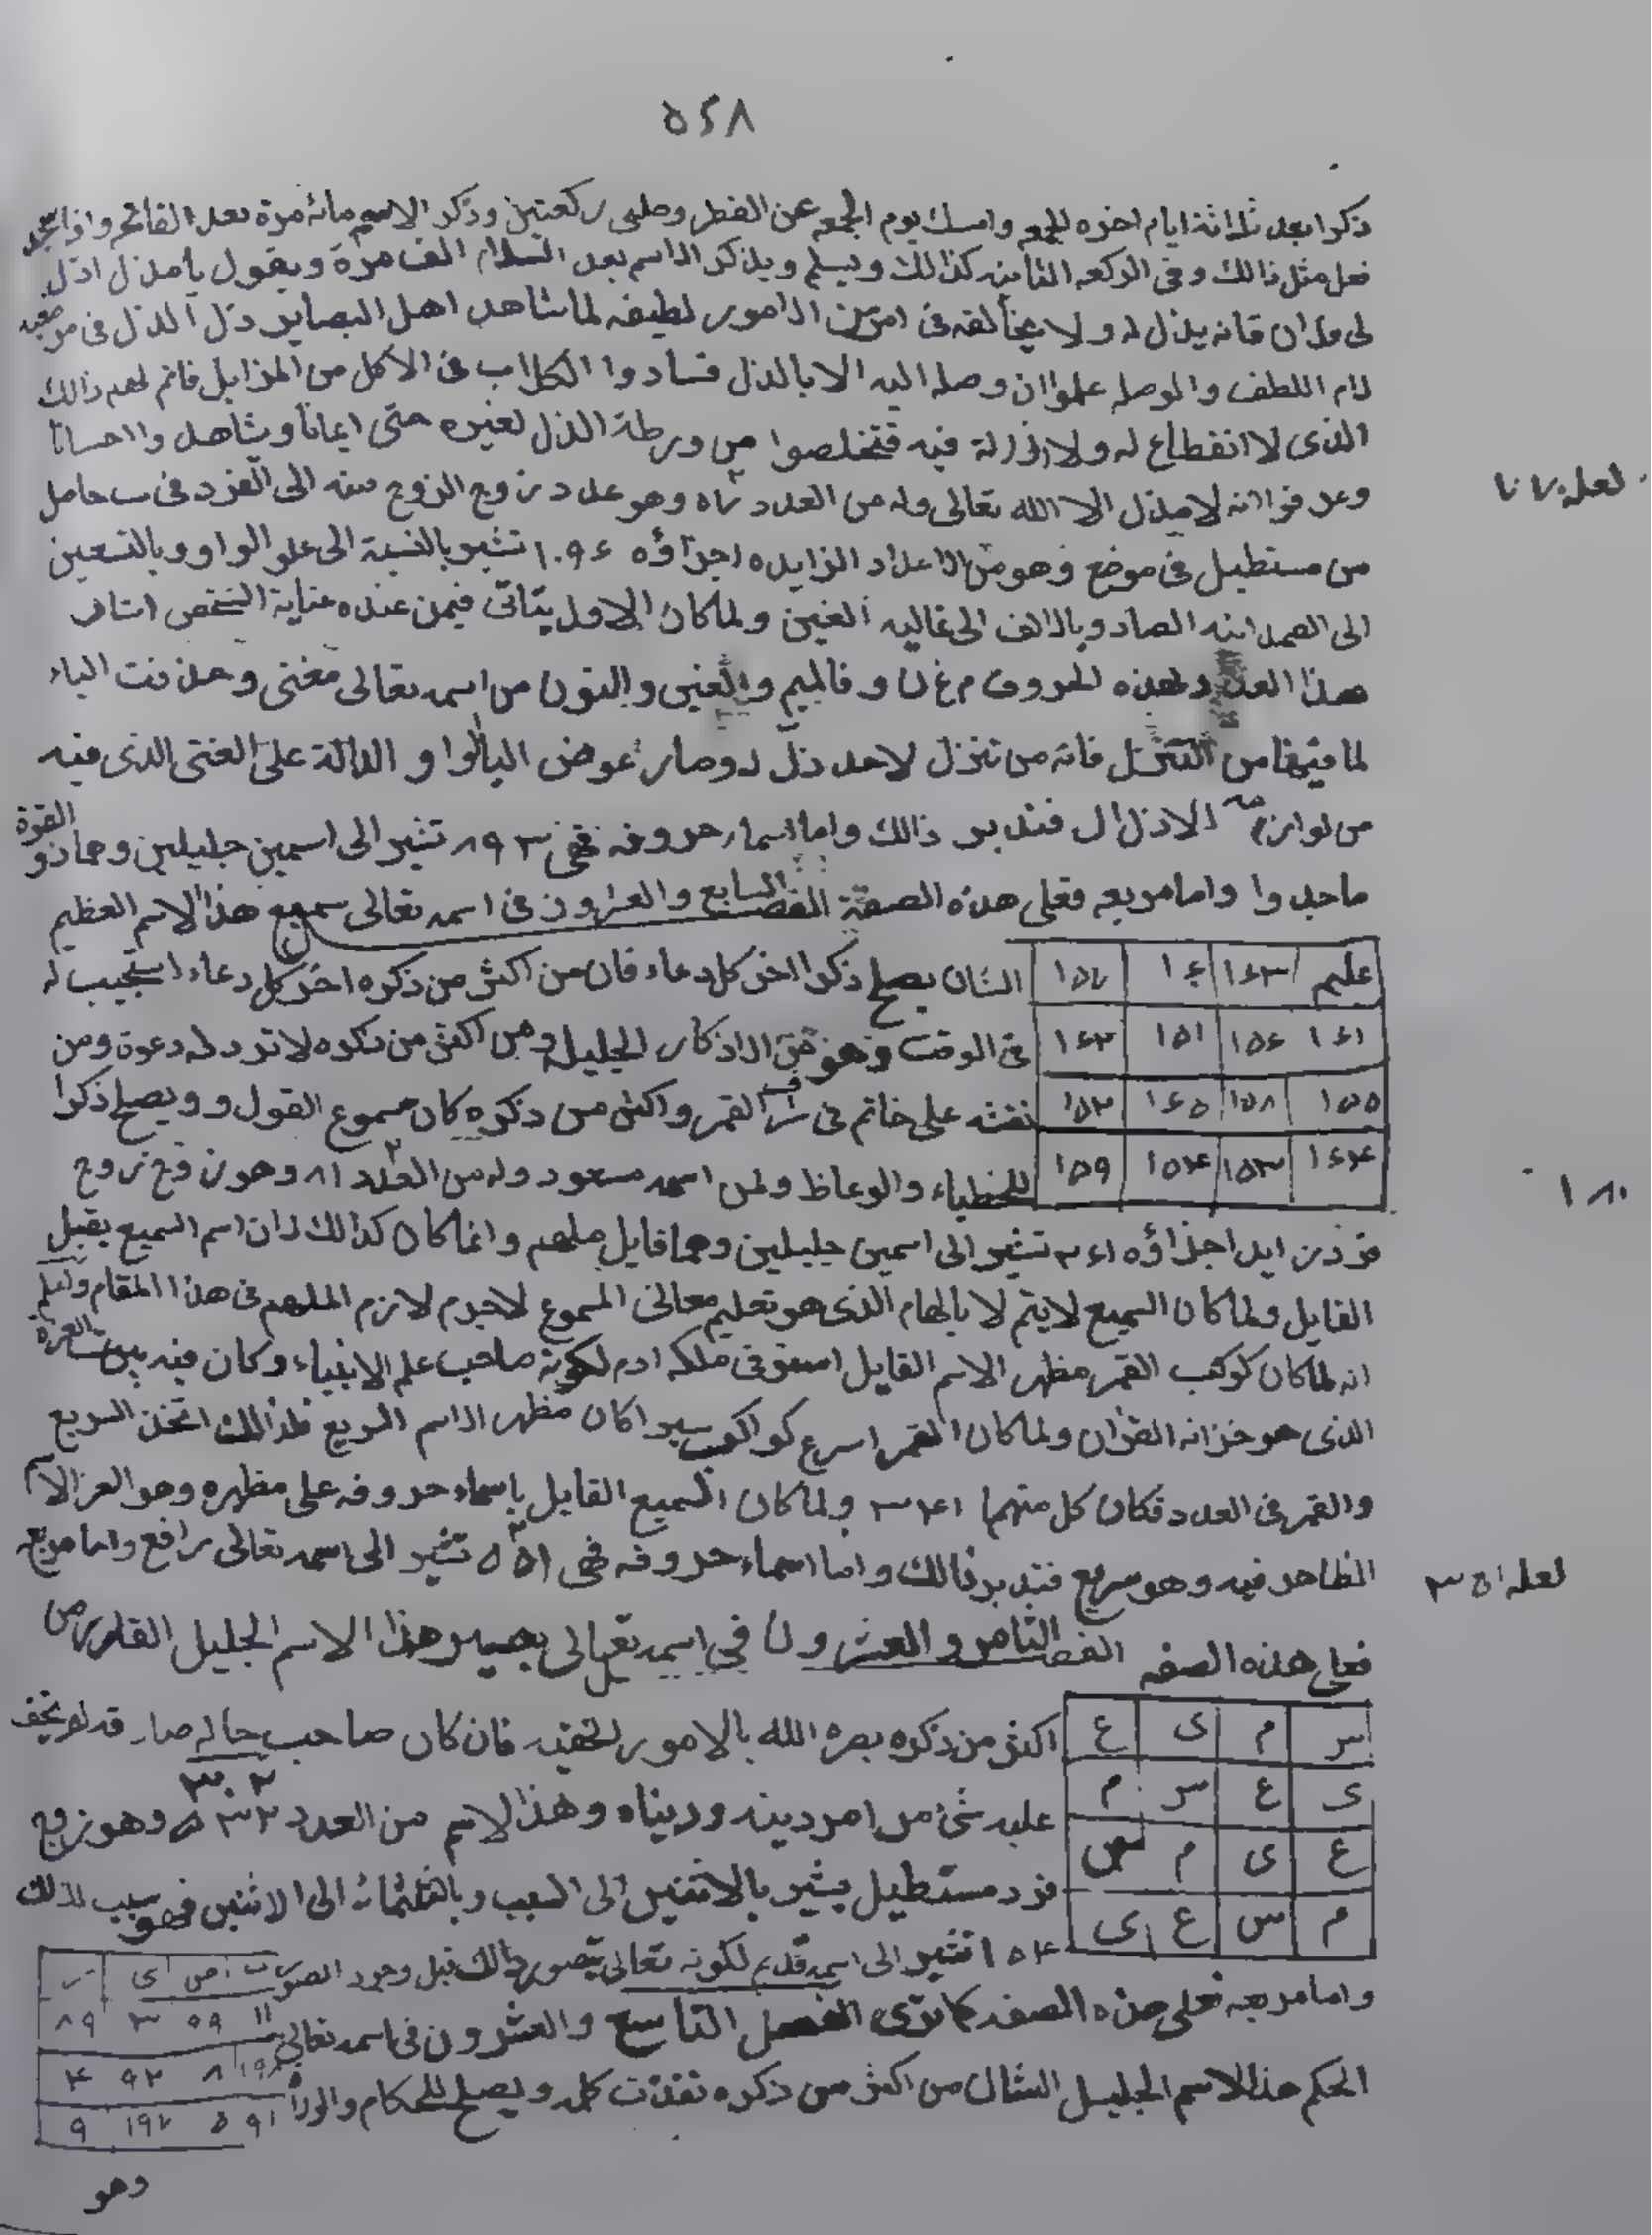 ٥٢٨
ذكرا بعد ثلاثة ايام اخره للجمعه وامسك يوم الجمعه عن الفطر وصلى ركعتين وذكر الاسم مائة مرة بعد الفاتحه واذا سجد
فعل مثل ذالك وفى الركعه الثانيه كذالك ويسلم ويذكر الاسم بعد السلام الف مرة ويقول يا مذل اذل
لى فلان فانه يذل له ولا يخالفه فى امر من الامور لطيفه لما شاهد اهل البصاير ذل الذل فى
اللطف والوصله علموا ان وصله اليه الا بالذل فسادوا الكلاب فى الاكل من المزابل فاتم لهم ذالك
الذى لا انقطاع له ولا فيه فتخلصوا من ورطة الذل لغيره حتى ايمانا ويشاهد واحسانا
وعرفوا انه لا مذل الا الله تعالى وله من العدد وهو عدد زوج الزوج منه الى الفرد فى حاصل
لعله
من مستطيل فى موضع وهو من الاعداد الزايده اجزاؤه ١٠٩٤ تشير بالنسبة الى علو الواو وبالتسعين
الى الصمد الصاد وبالالف الى الغين ولما كان الاول يتاتى فيمن عنده عناية الشخص اشار
هذا العدد لهذه الحروف م غ ن و فالميم والغين والنون من اسمه تعالى مغنى وحذفت الياء
لما فيها من التنزل فانه من تنزل لاحد ذل له وصار عوض اليا الواو الدالة على الغنى الذى فيه
من لوازمه الاذلال فتدبر ذالك واما اسماء حروفه فهى ٨٩٣ تشير الى اسمين جليلين وهما ذو القوة
ماجد وا واما مربعه فعلى هذه الصفة الفصل السابع والعشرون فى اسمه تعالى سميع هذا الاسم العظيم
الشان يصلح ذكرا اخر كل دعاء فان من اكثر من ذكره اخر كل دعاء استجيب له
فى الوقت وهو من الاذكار الجليله ومن اكثر من ذكره لا ترد له دعوة ومن
نقشه على خاتم فى شرف القمر واكثر من ذكره كان مسموع القول و ويصلح ذكرا
للخطباء والوعاظ ولمن اسمه مسعود وله من العدد ١٨ وهو زوج زوج
١٨٠
فرد زايد اجزاؤه تشير الى اسمين جليلين وهما قايل ملهم وانما كان كذالك لان اسم السميع يقبل
القايل ولما كان السميع لا يتم لا بالهام الذى هو تعليم معالى المسموع لاجرم لازم الملهم فى هذا المقام واعلم
انه لما كان كوكب القمر مظهر الاسم القايل فى ملكه ادم لكونه صاحب علم الانبياء وكان فيه بيت العزة
الذى هو خزانة القران ولما كان القمر اسرع كواكب سيرا كان مظهر الاسم السريع فلذالك اتخذ السريع
والقمر فى العدد فكان كل منهما ٣٤١ ولما كان السميع القايل باسماء حروفه على مظهره وهو العز
الظاهر فيه وهو سريع فتدبر ذالك واما اسماء حروفه فهى تشير الى اسمه تعالى رافع واما مربعه
لعله ٣٥١
فعلى هذه الصفه الفصل الثامن والعشرون فى اسمه تعالى بصير هذا الاسم الجليل القدر من
اكثر من ذكره بصره الله بالامور الخفيه فان كان صاحب حاله صار قد لم يخف
٣٠٢
عليه شئ من امر دينه ودنياه وهذا الاسم من العدد وهو زوج
فرد مستطيل يشير بالاثنين الى السبب وبالثلثمائة الى الاثنين فهو سبب لذلك
١٥٤ تشير الى اسمه قديم لكونه تعالى يتصور ذالك قبل وجود الصور
واما مربعه فعلى هذه الصفه كما ترى الفصل التاسع والعشرون فى اسمه تعالى
الحكم هذا الاسم الجليل الشان من اكثر من ذكره نفذت كلمه ويصلح للحكام والوزرا
وهو
عليم
١٦١
١٥٥
س م ى ع
ى ع س م
ع ى م س
م س ع ى
ص ى ر
١١ ٩٩ ٣ ٨٩
٨ ٩٢ ٤
٩١ ٥ ١٩٢ ٩